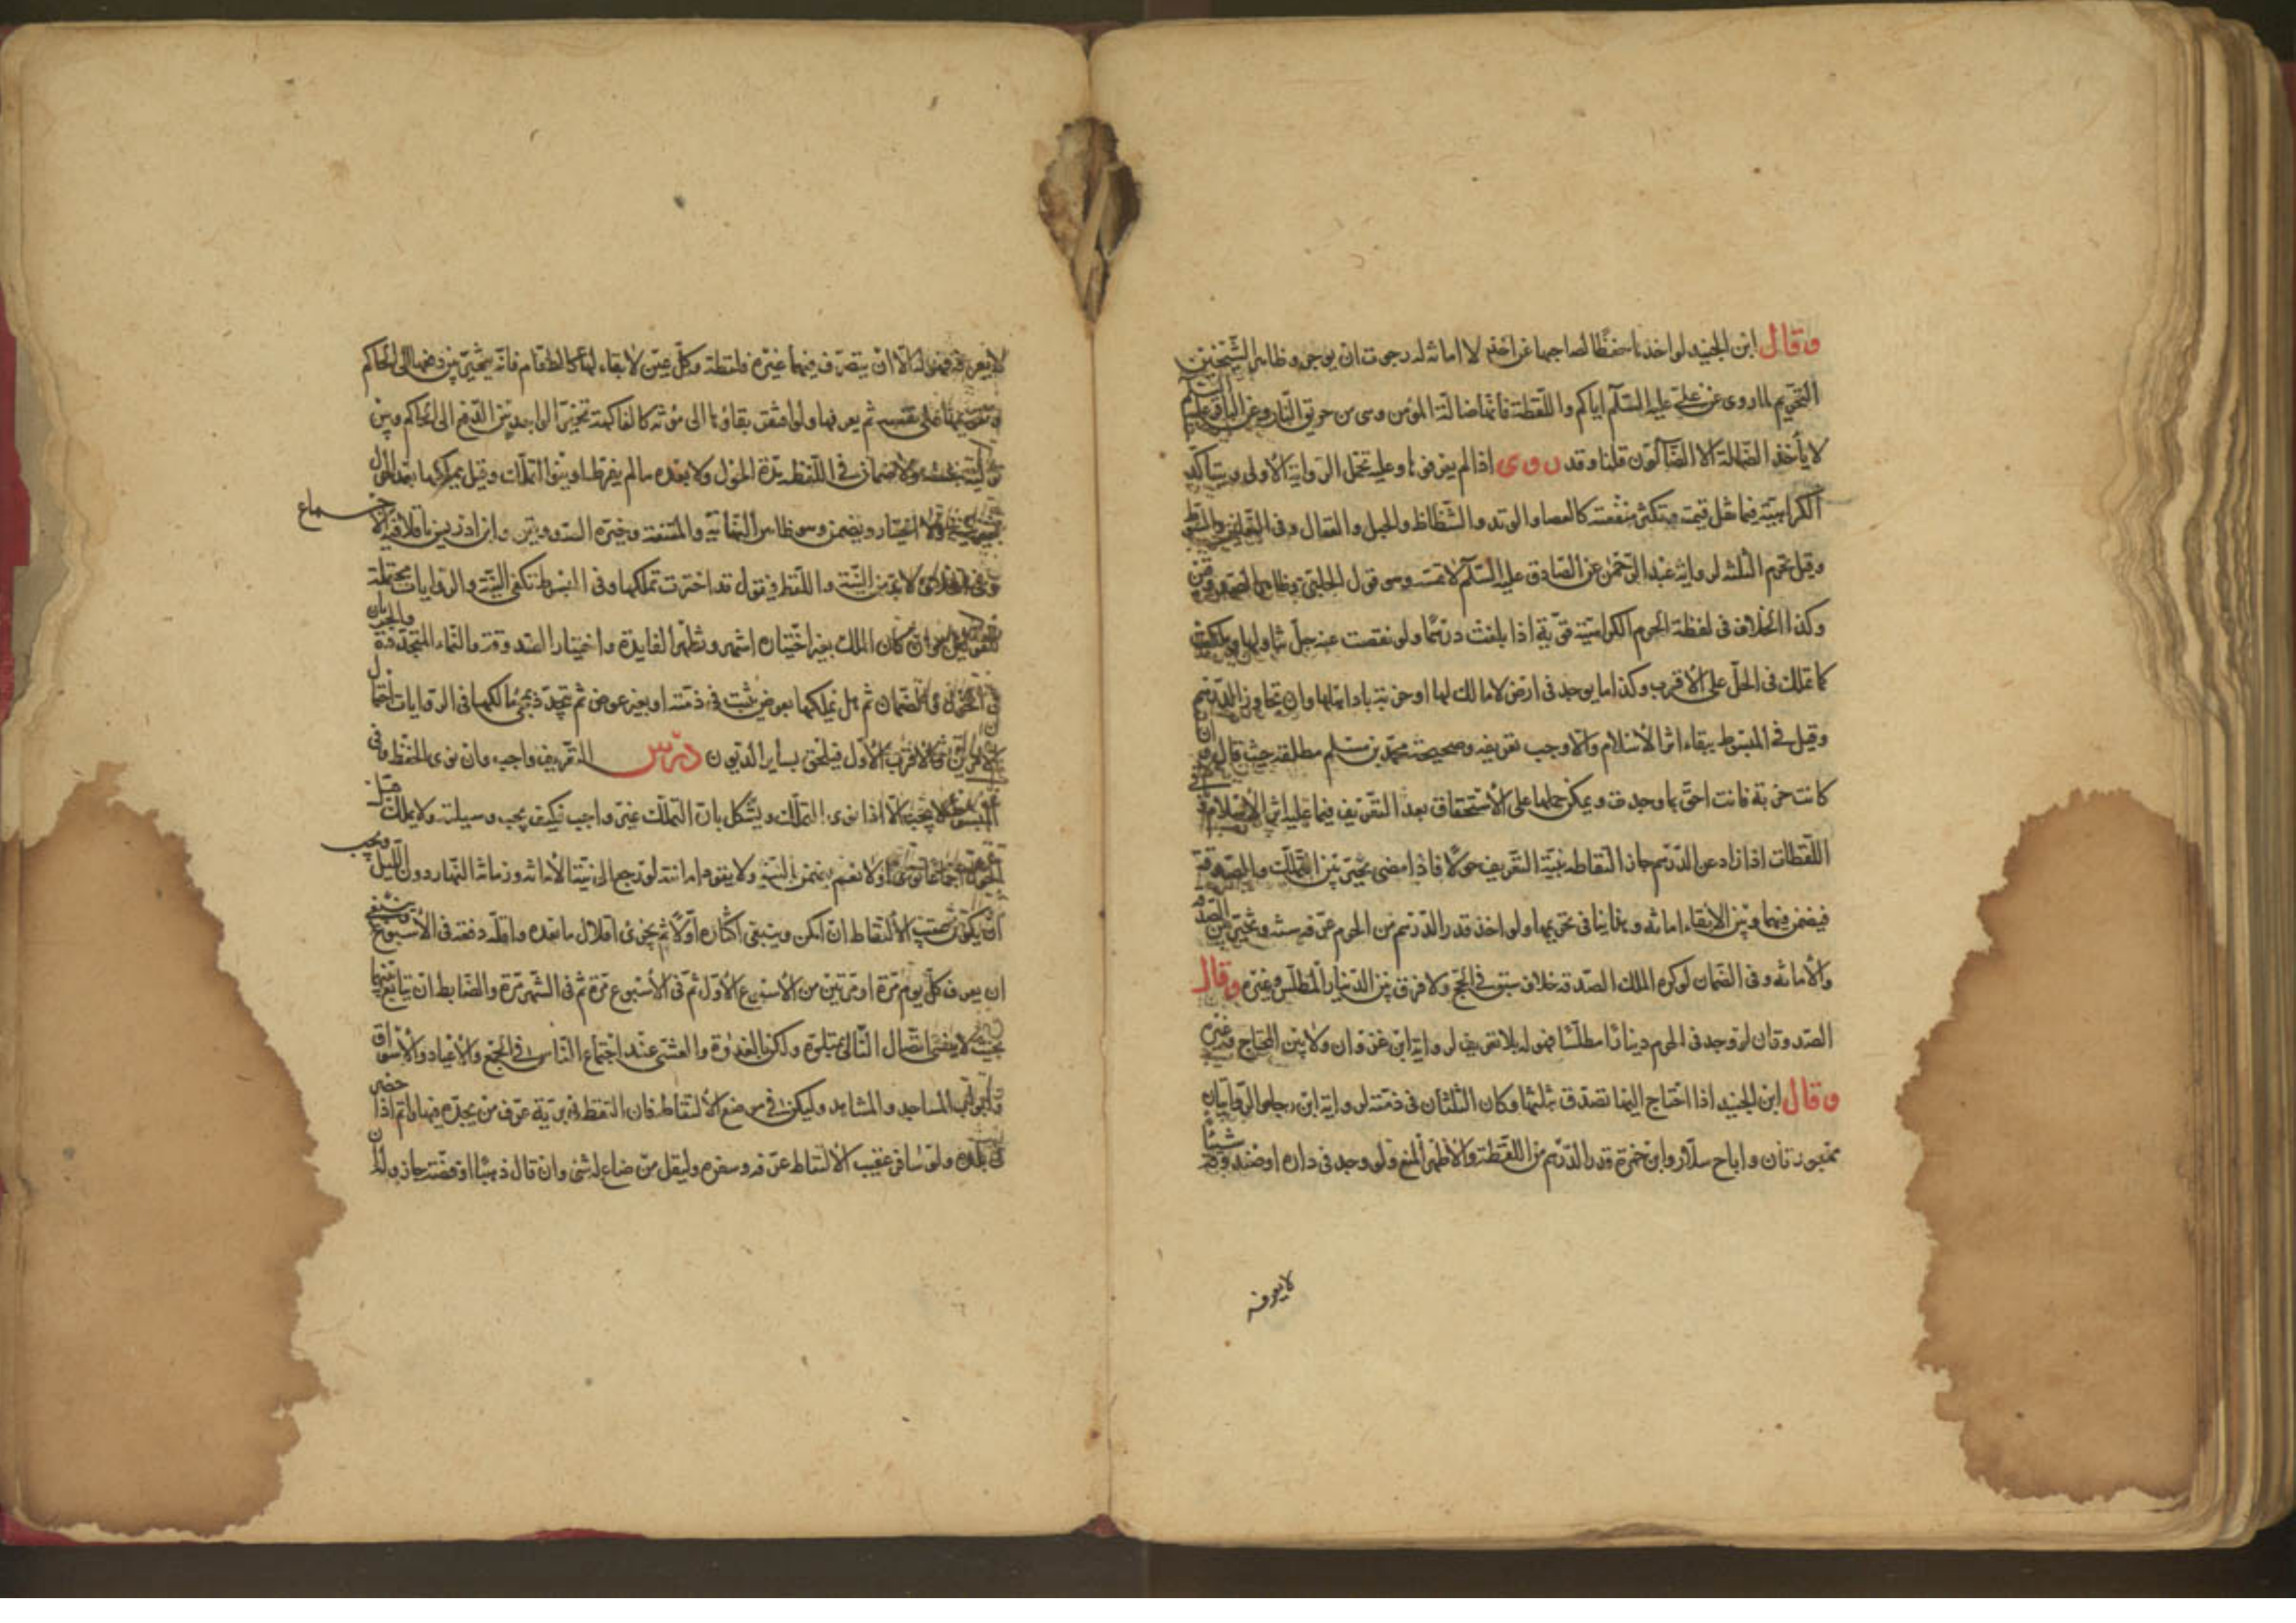 وقال ابن الجنيد لو اخذها حفظا لصاحبها عن اخذ من لا امانة له رجوت ان يوجر وظاهر الشيخين
التحريم لما روى عن علي عليه السلام اياكم واللقطة فانها ضالة المؤمن وهى من حريق النار وعن الباقر عليه السلم
لا يأخذ الضالة الا الضالون قلنا وقد روى اذا لم يعرفها وعليه تحمل الرواية الأولى ويتأكد
الكراهية فيما تقل قيمته وتكثر منفعته كالعصا والوتد والشظاظ والحبل والعقال وفى النعلين والسوط
وقيل تحرم الثلثة لرواية عبد الرحمن عن الصادق عليه السلم لا تمسه وهو قول الحلبي وظاهر الصدوقين
وكذا الخلاف فى لقطة الحرم الكراهية قوية اذا بلغت درهما ولو نقصت عنه حل تناولها ويملكت
كما تملك فى الحل على الأقرب وكذا ما يوجد فى ارض لا مالك لها او خربة باد اهلها وان تجاوز الدرهم
وقيل فى المبسوط ببقاء اثر الأسلام والا وجب تعريفه وصحيحة محمد بن مسلم مطلقة حيث قال وان
كانت خربة فانت احق بما وجدت ويمكن حملها على الأستحقاق بعد التعريف فيما عليه اثر الأسلام
اللقطات اذا زاد عن الدرهم جاز التقاطه بنية التعريف حولا فاذا مضى تخير بين التملك والصدقة
فيضمن فيهما وبين الابقاء امانة وما بقاينا فى تحريمها ولو اخذ قدر الدرهم من الحرم عرفه سنة وتخير بين الصدقة
والأمانة وفى الضمان لو كره المالك الصدقة خلاف سبق فى الحج ولا فرق بين الدينار المطلس وغيره وقال
الصدوقان لو وجد فى الحرم دينارا مطلسا فهو له بلا تعريف لرواية ابن غزوان ولا بين المحتاج وغيره
وقال ابن الجنيد اذا احتاج اليها تصدق بثلثها وكان الثلثان فى ذمته لرواية ابن رجا والروايتان
مهجورتان واباح سلار وابن حمزة قدر الدرهم من اللقطة والأظهر المنع ولو وجد فى داره او صندوقه شيئا
لا يعرفه
لا يعرفه فهو له الا ان يتصرف فيهما غيره فلقطة وكل عين لا بقاء لها كالطعام فانه يتخير بين دفعها الى الحاكم
وتقويمها على نفسه ثم يعرفها ولو افتقر بقاؤها الى مؤنة كالفاكهة تخير الواجد بين الدفع الى الحاكم وبين
ولا ضمان فى اللقطة مدة الحول ولا بعده ما لم يفرط او ينوا التملك وقيل يملكها بعد الحول
بغير نية ولا اختيار ويضمن وهو ظاهر النهاية والمقنعة وخيرة الصدوقين وابن ادريس ناقلا فيه الاجماع
وفى الخلاف لا بد من النية واللفظ فيقول قد اخترت تملكها وفى المبسوط تكفى النية والروايات محتملة
للقولين وان كان الملك بغير اختياره اشهر وتظهر الفايدة واختيار الصدقة والنماء المتجدد والجريان
فى الحول والضمان ثم هل يملكها بعوض يثبت فى ذمته او بغير عوض ثم يتجدد بمجئ مالكها فى الروايات احتمال
والاقرب الأول فيلحق بساير الديون درس التعريف واجب وان نوى الحفظ وفى
المبسوط لا يجب الا اذا نوى التملك ويشكل بان التملك غير واجب فكيف يجب وسيلته ولا يملك قبل
الحول اجماعا نوى اولا نعم يضمن بالنية ولا يعود امانته لو رجع الى نية الأمانة وزمانه النهار دون الليل ويجب
ان يكون عقيب الألتقاط ان امكن وينبغى اكثاره اولا ثم يجزئ اقلال ما بعده واقله دفعة فى الأسبوع وينبغى
ان يعرف كل يوم مرة او مرتين من الأسبوع الأول ثم فى الأسبوع مرة ثم فى الشهر مرة والضابط ان يتابع بينهما
بحيث لا ينسى اتصال الثانى بمتلوه وليكن بالغدوة والعشى عند اجتماع الناس فى الجمع والأعياد والأسواق
وابواب المساجد والمشاهد وليكن فى موضع الألتقاط فان التقط فى برية عرف من يجده فيها واتم اذا حضر
فى بلده ولو سافر عقيب الألتقاط عرفه وسفره وليقل من ضاع له شئ وان قال ذهبا او فضة جاز